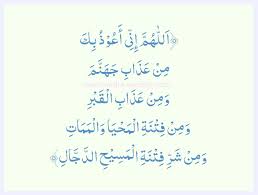 ﴿اَللّٰهُمَّ إِنِّي أَعُوْذُ بِكَ
مِنْ عَذَابِ جَهَنَّمَ
وَمِنْ عَذَابِ الْقَبْرِ
وَمِنْ فِتْنَةِ الْمَحْيَا وَالْمَمَاتِ
وَمِنْ شَرِّ فِتْنَةِ الْمَسِيْحِ الدَّجَّالِ﴾